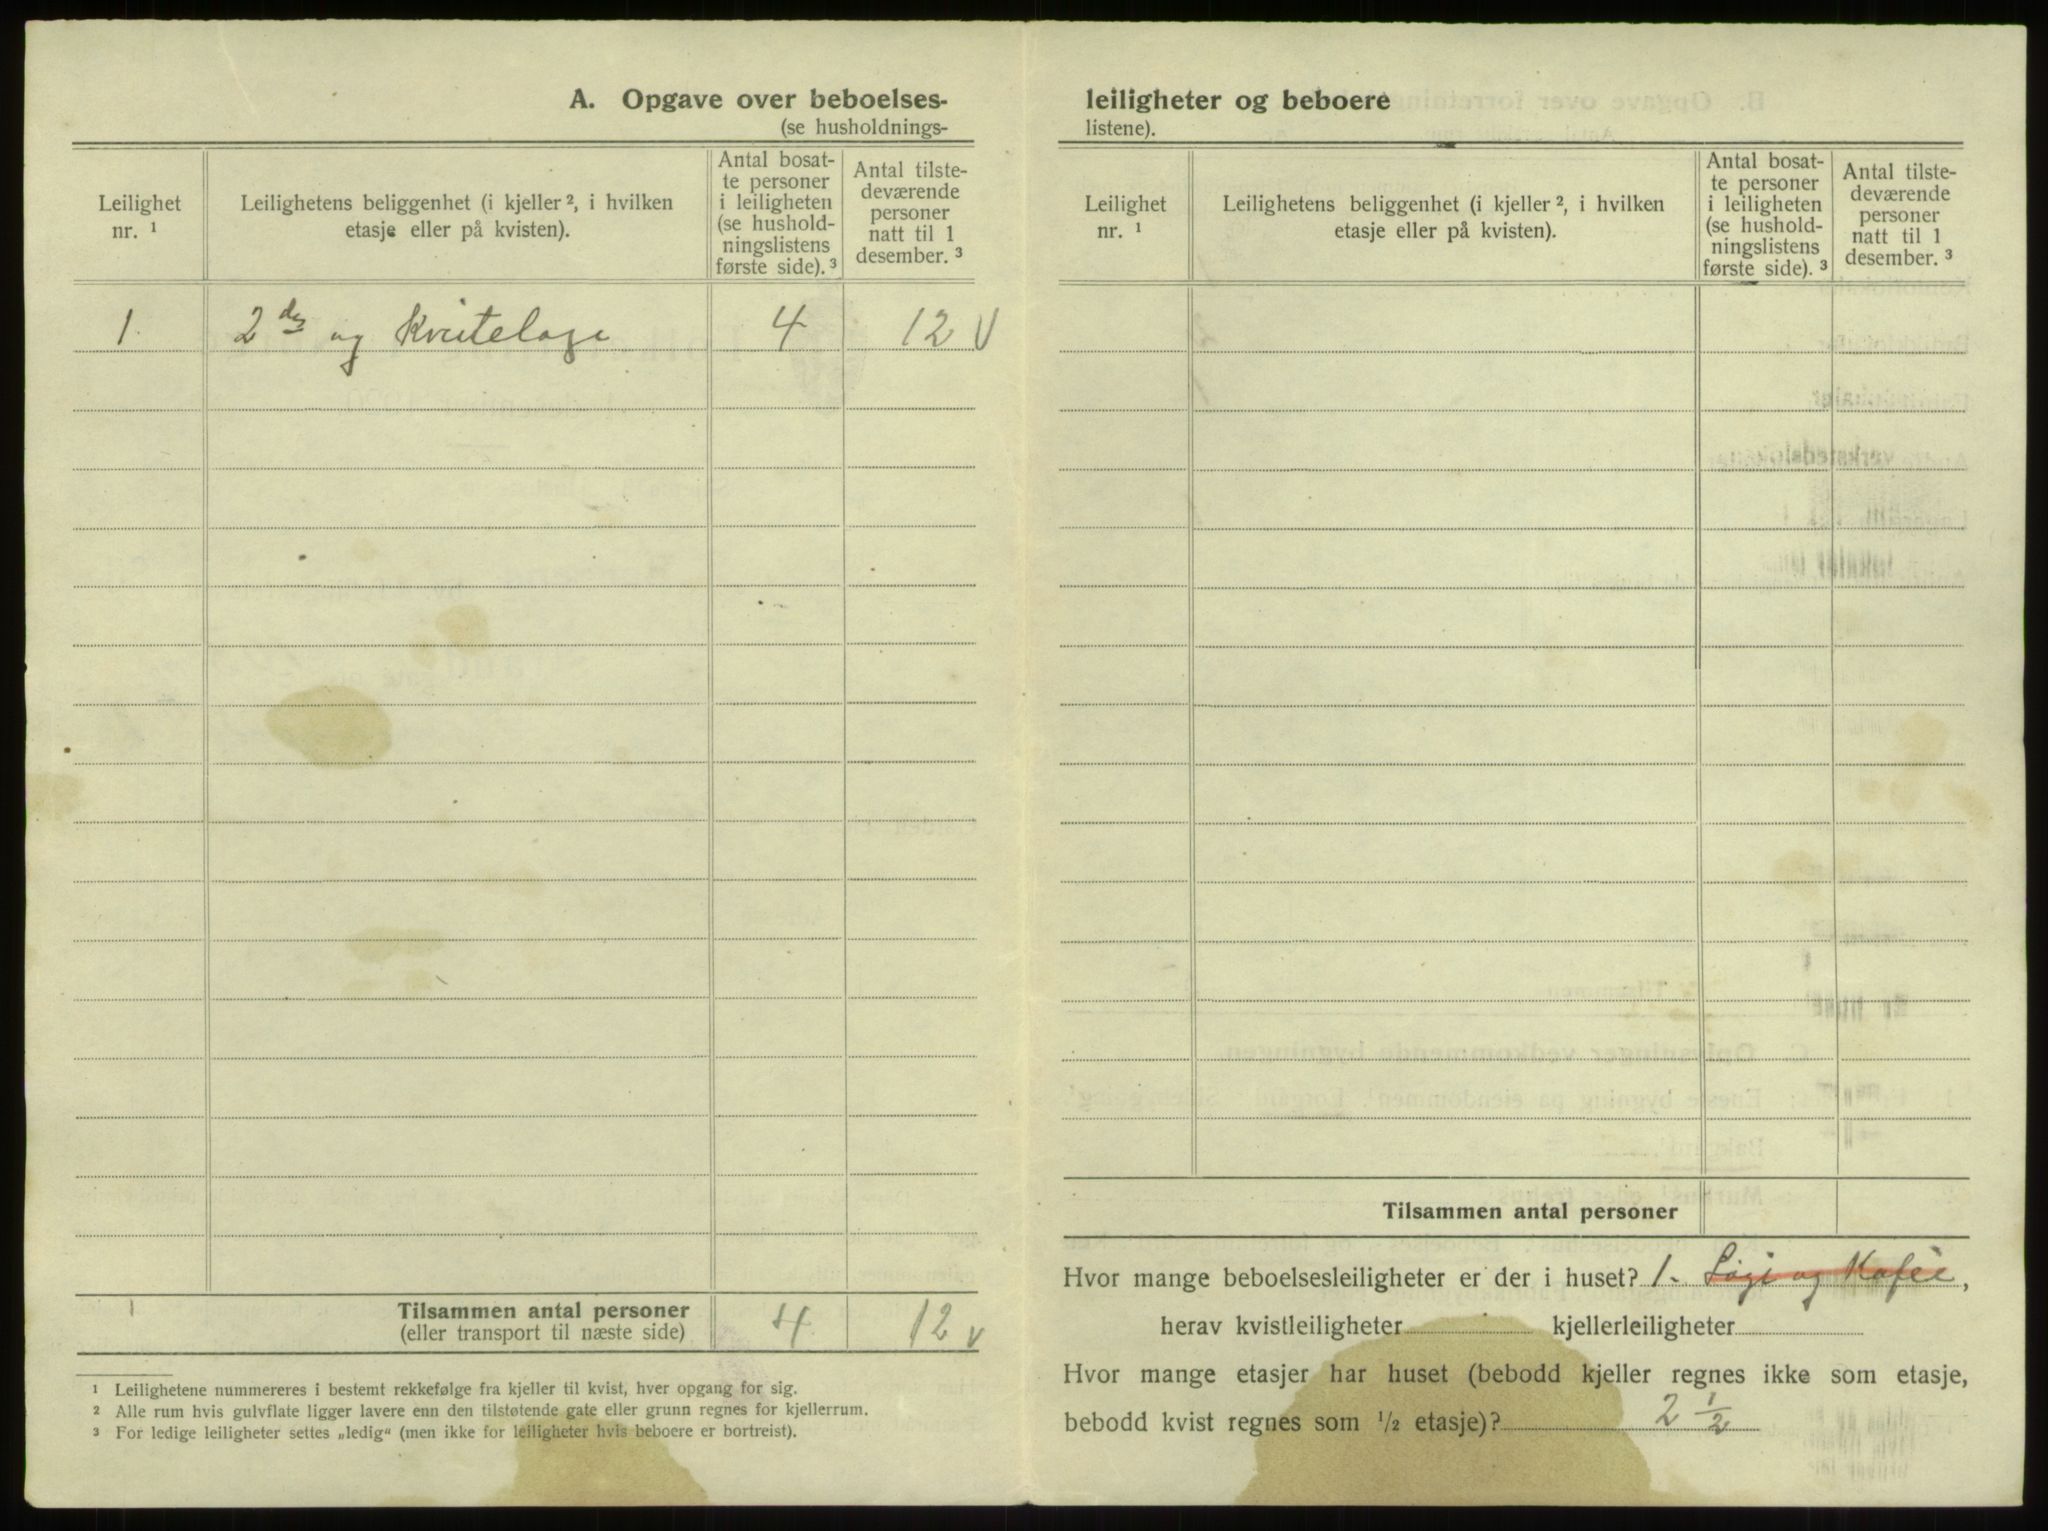 A. Opgave over beboelses-
(se husholdnings-
Leilighet
nr. ¹
Leilighetens beliggenhet (i kjeller ², i hvilken
etasje eller på kvisten).
Antal bosat-
te personer
i leiligheten
(se hushold-
ningslistens
første side). ³
Antal tilste-
deværende
personer
natt til 1
desember. ³
1. 2 og 4 12 V
Tilsammen antal personer 4 12 v
(eller transport til næste side)
¹ Leilighetene nummereres i bestemt rekkefølge fra kjeller til kvist, hver opgang for sig.
² Alle rum hvis gulvflate ligger lavere enn den tilstøtende gate eller grunn regnes for kjellerrum.
³ For ledige leiligheter settes „ledig“ (men ikke for leiligheter hvis beboere er bortreist).
leiligheter og beboere
listene).
Leilighet
nr. ¹
Leilighetens beliggenhet (i kjeller ², i hvilken
etasje eller på kvisten).
Antal bosat-
te personer
i leiligheten
(se hushold-
ningslistens
første side). ³
Antal tilste-
deværende
personer
natt til 1
desember. ³
Tilsammen antal personer
Hvor mange beboelsesleiligheter er der i huset? 1. og Kafée,
herav kvistleiligheter kjellerleiligheter
Hvor mange etasjer har huset (bebodd kjeller regnes ikke som etasje,
bebodd kvist regnes som ½ etasje)? 2 ½